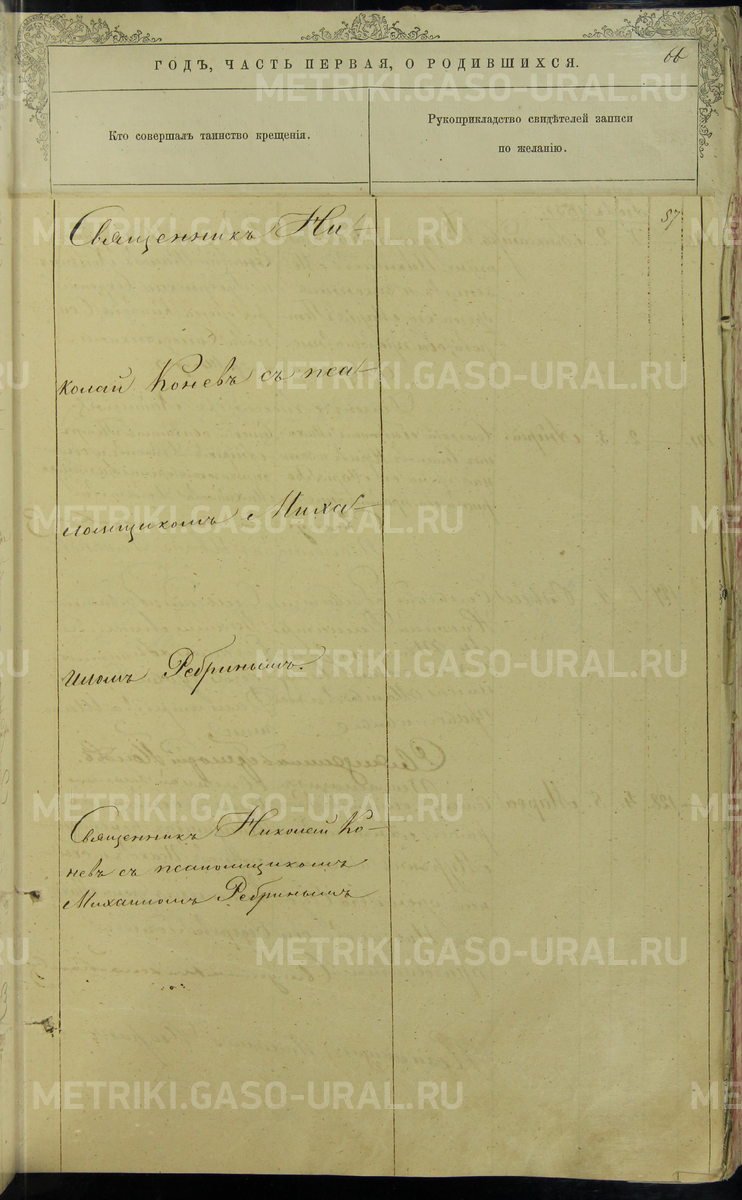 ГОДЪ, ЧАСТЬ ПЕРВАЯ, О РОДИВШИХСЯ.
66
Кто совершалъ таинство крещенія.
Рукоприкладство свидѣтелей записи
по желанію.
57
Священникъ Ни-
колай Коневъ съ пса-
ломщикомъ Миха-
иломъ Ребринымъ.
Священникъ Николай Ко-
невъ съ псаломщикомъ
Михаиломъ Ребринымъ
METRIKI.GASO-URAL.RU